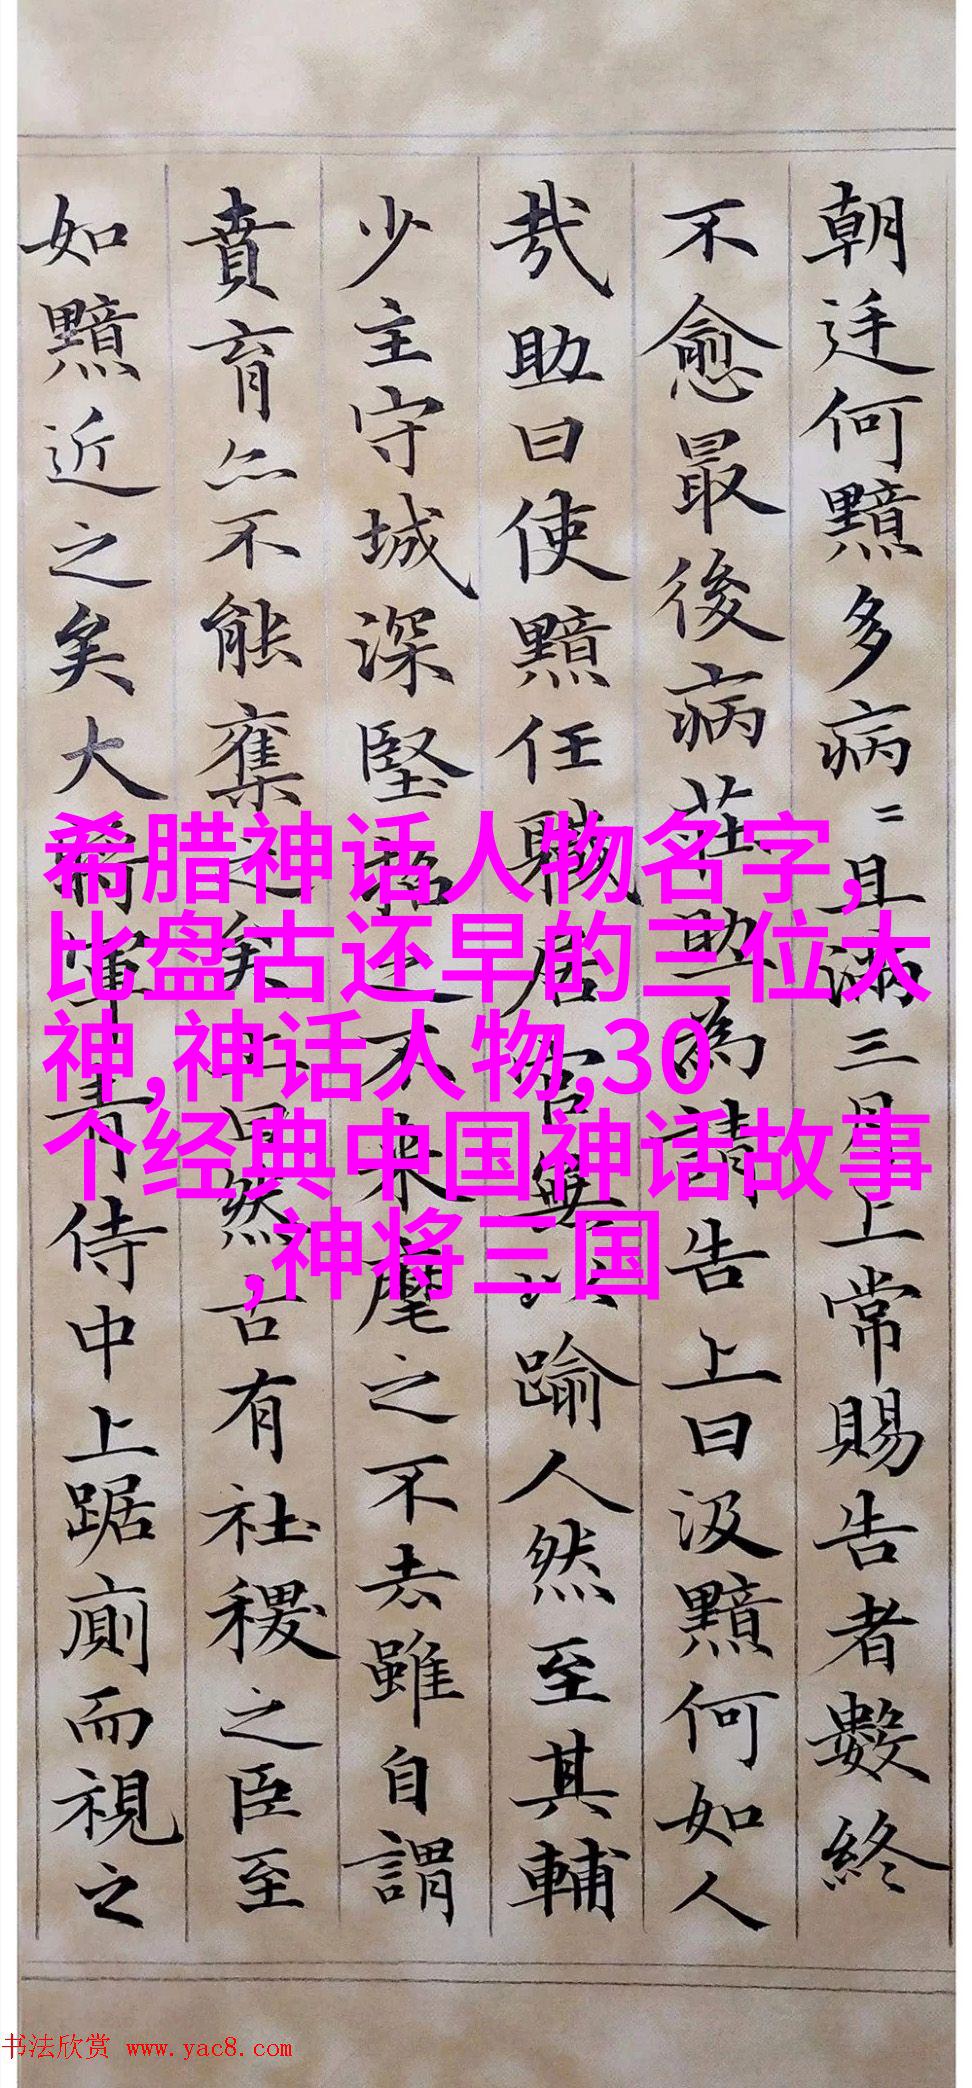 朝廷何黯多病〻且滿三月上常賜告者數終
不愈最後病莊助為請告上曰汲黯何如人
哉助曰使黯任職居官無以踰人然至其輔
少主守城深堅招之不來麾之不去雖自謂
賁育亦不能奪之矣上曰然古有社稷之臣至
如黯近之矣大將軍青侍中上踞廁而視之
希腊神话人物名字,
比盘古还早的三位大
神,神话人物,30
个经典中国神话故事
,神将三国
书法欣赏 www.yac8.com